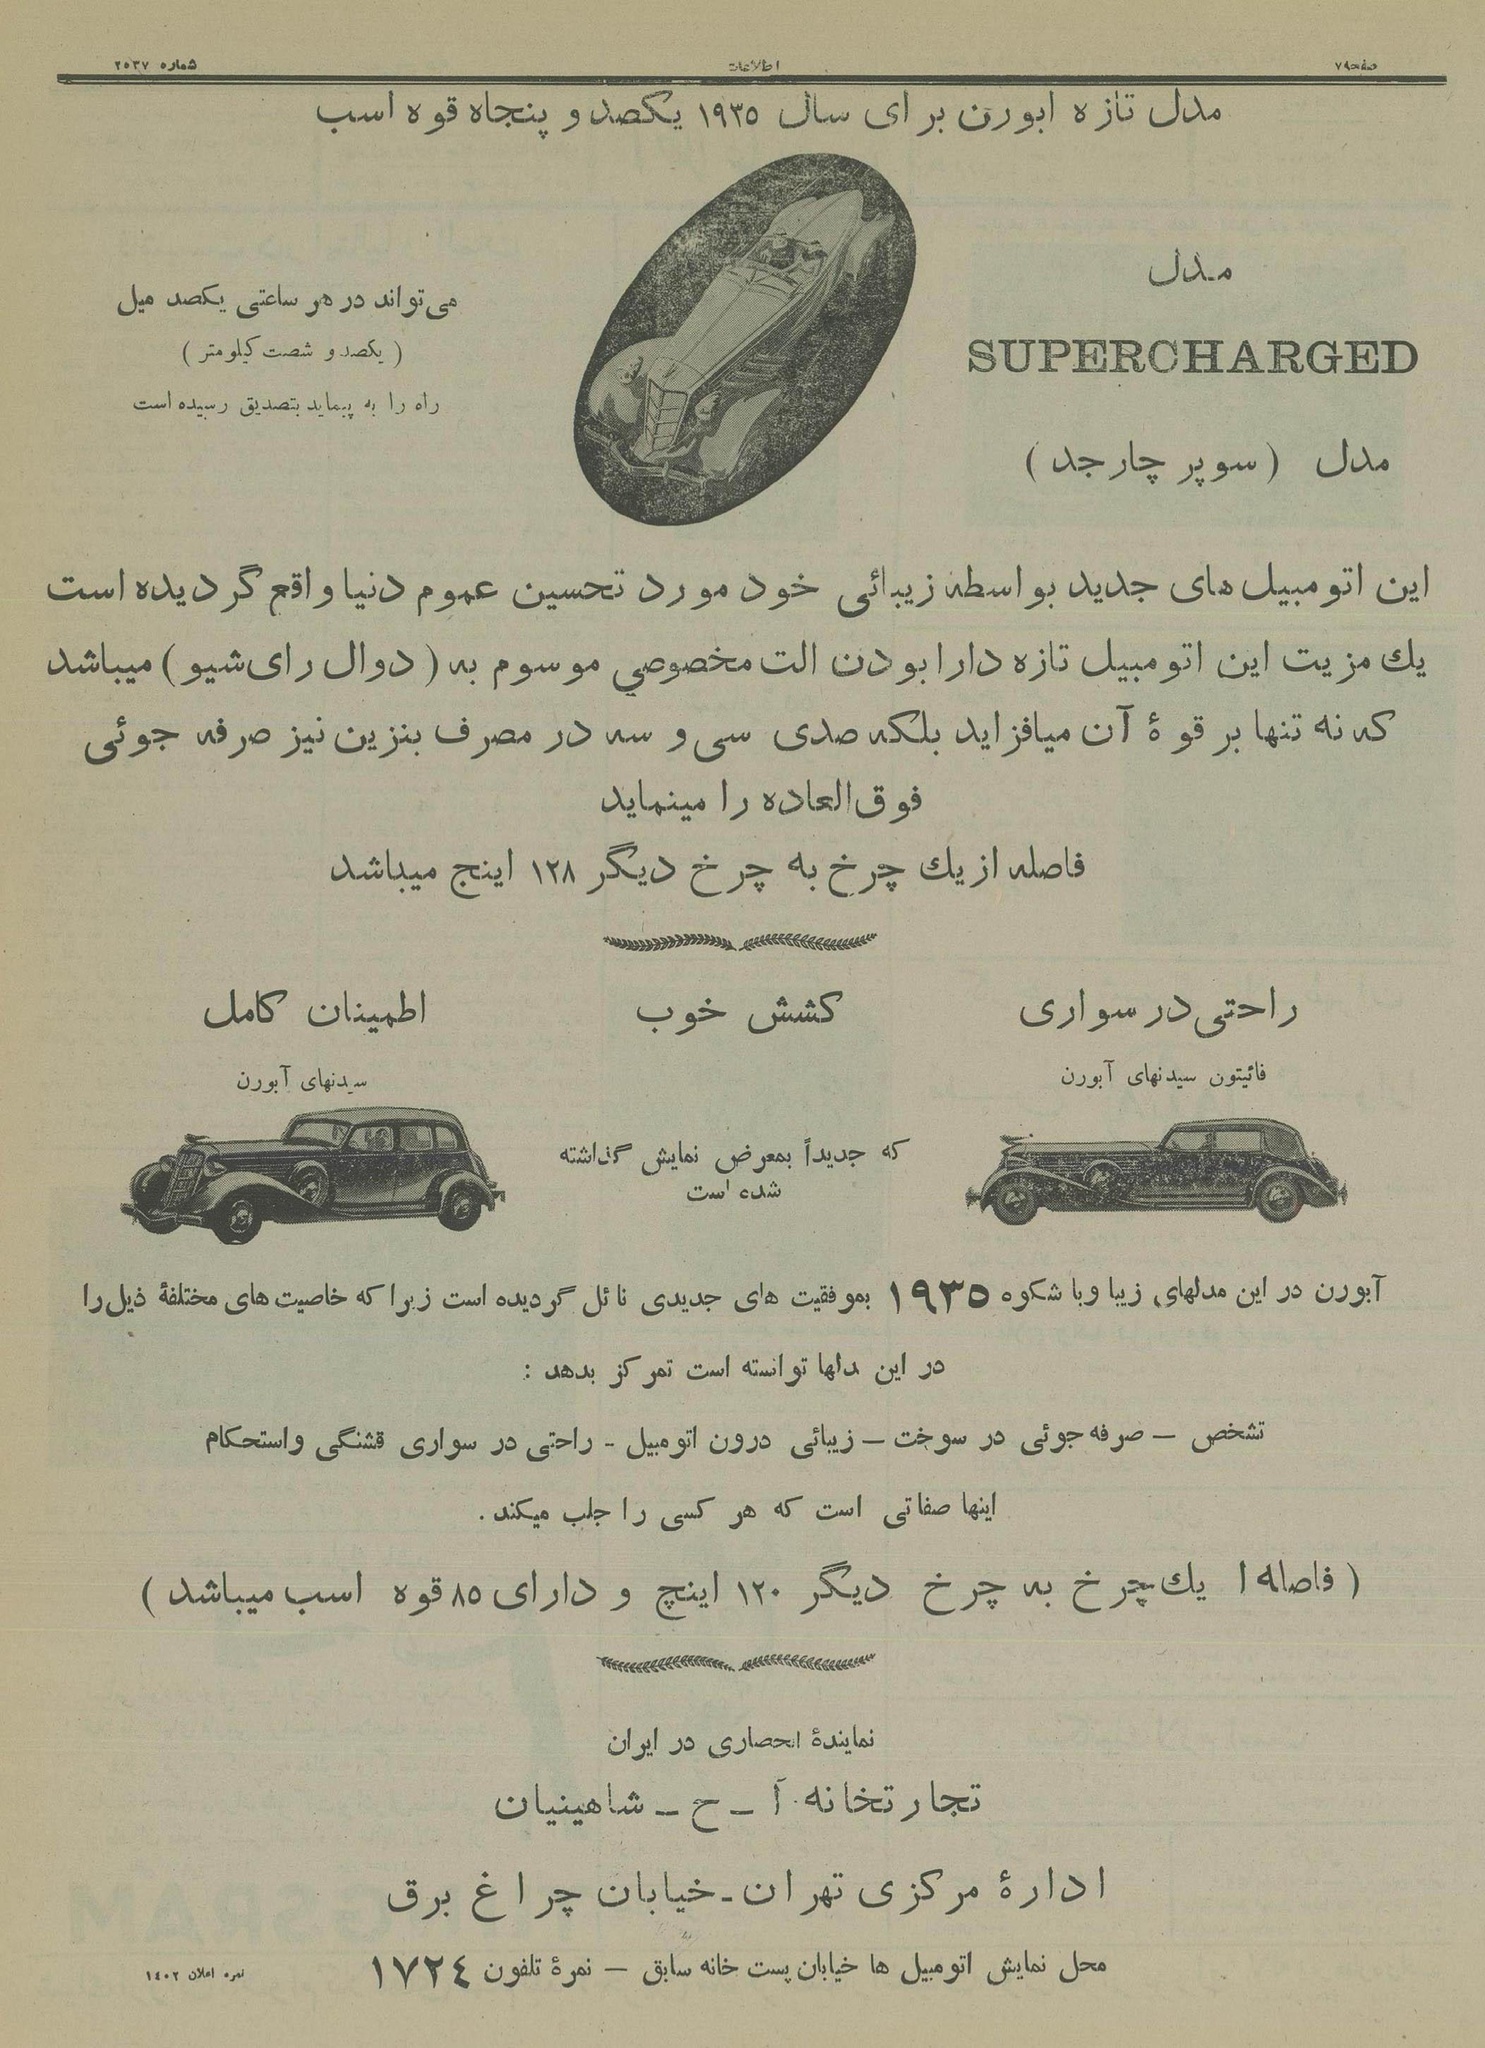 صفحه ۷۹
اطلاعات
شماره ۲۵۳۷
مدل تازه ابورن برای سال ۱۹۳۵ یکصد و پنجاه قوه اسب
مدل
SUPERCHARGED
مدل (سوپر چارجد)
می‌تواند در هر ساعتی یکصد میل
(یکصد و شصت کیلومتر)
راه را به پیماید بتصدیق رسیده است
این اتومبیل های جدید بواسطه زیبائی خود مورد تحسین عموم دنیا واقع گردیده است
یك مزیت این اتومبیل تازه دارا بودن الت مخصوصي موسوم به (دوال رای شیو) میباشد
که نه تنها بر قوۀ آن میافزاید بلکه صدی سی و سه در مصرف بنزین نیز صرفه جوئی
فوق‌العاده را مینماید
فاصله از یك چرخ به چرخ دیگر ۱۲۸ اینج میباشد
راحتی در سواری
کشش خوب
اطمینان کامل
فائیتون سیدنهای آبورن
سیدنهای آبورن
که جدیداً بمعرض نمایش گذاشته
شده است
آبورن در این مدلهای زیبا و با شکوه ۱۹۳۵ بموفقیت های جدیدی نائل گردیده است زیرا که خاصیت های مختلفۀ ذیل را
در این مدلها توانسته است تمرکز بدهد :
تشخص – صرفه جوئی در سوخت – زیبائی درون اتومبیل - راحتی در سواری قشنگی و استحکام
اینها صفاتی است که هر کسی را جلب میکند .
(فاصله ا یك چرخ به چرخ دیگر ۱۲۰ اینچ و دارای ۸۵ قوه اسب میباشد)
نمایندۀ انحصاری در ایران
تجارتخانه آ – ح – شاهینیان
ادارۀ مرکزی تهران - خیابان چراغ برق
محل نمایش اتومبیل ها خیابان پست خانه سابق – نمرۀ تلفون ۱۷۲٤
نمره اعلان ۱٤۰۲